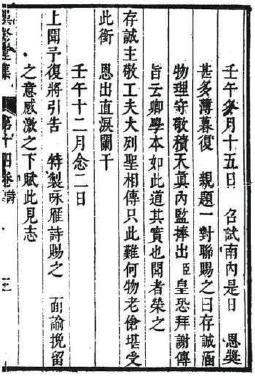 壬午冬月十五日　召試南內是日　恩奬
甚多薄暮復　親題一對聯賜之曰存誠涵
物理守敬積天真內監捧出臣皇恐拜謝傳
旨云卿學本如此道其實也聞者榮之
存誠主敬工夫大列聖相傳只此難何物老傖堪受
此銜　恩出直淚闌干
壬午十二月念二日
上聞予復將引告　特製咏雁詩賜之　面諭挽留
之意感激之下賦此見志
第十四卷
詩